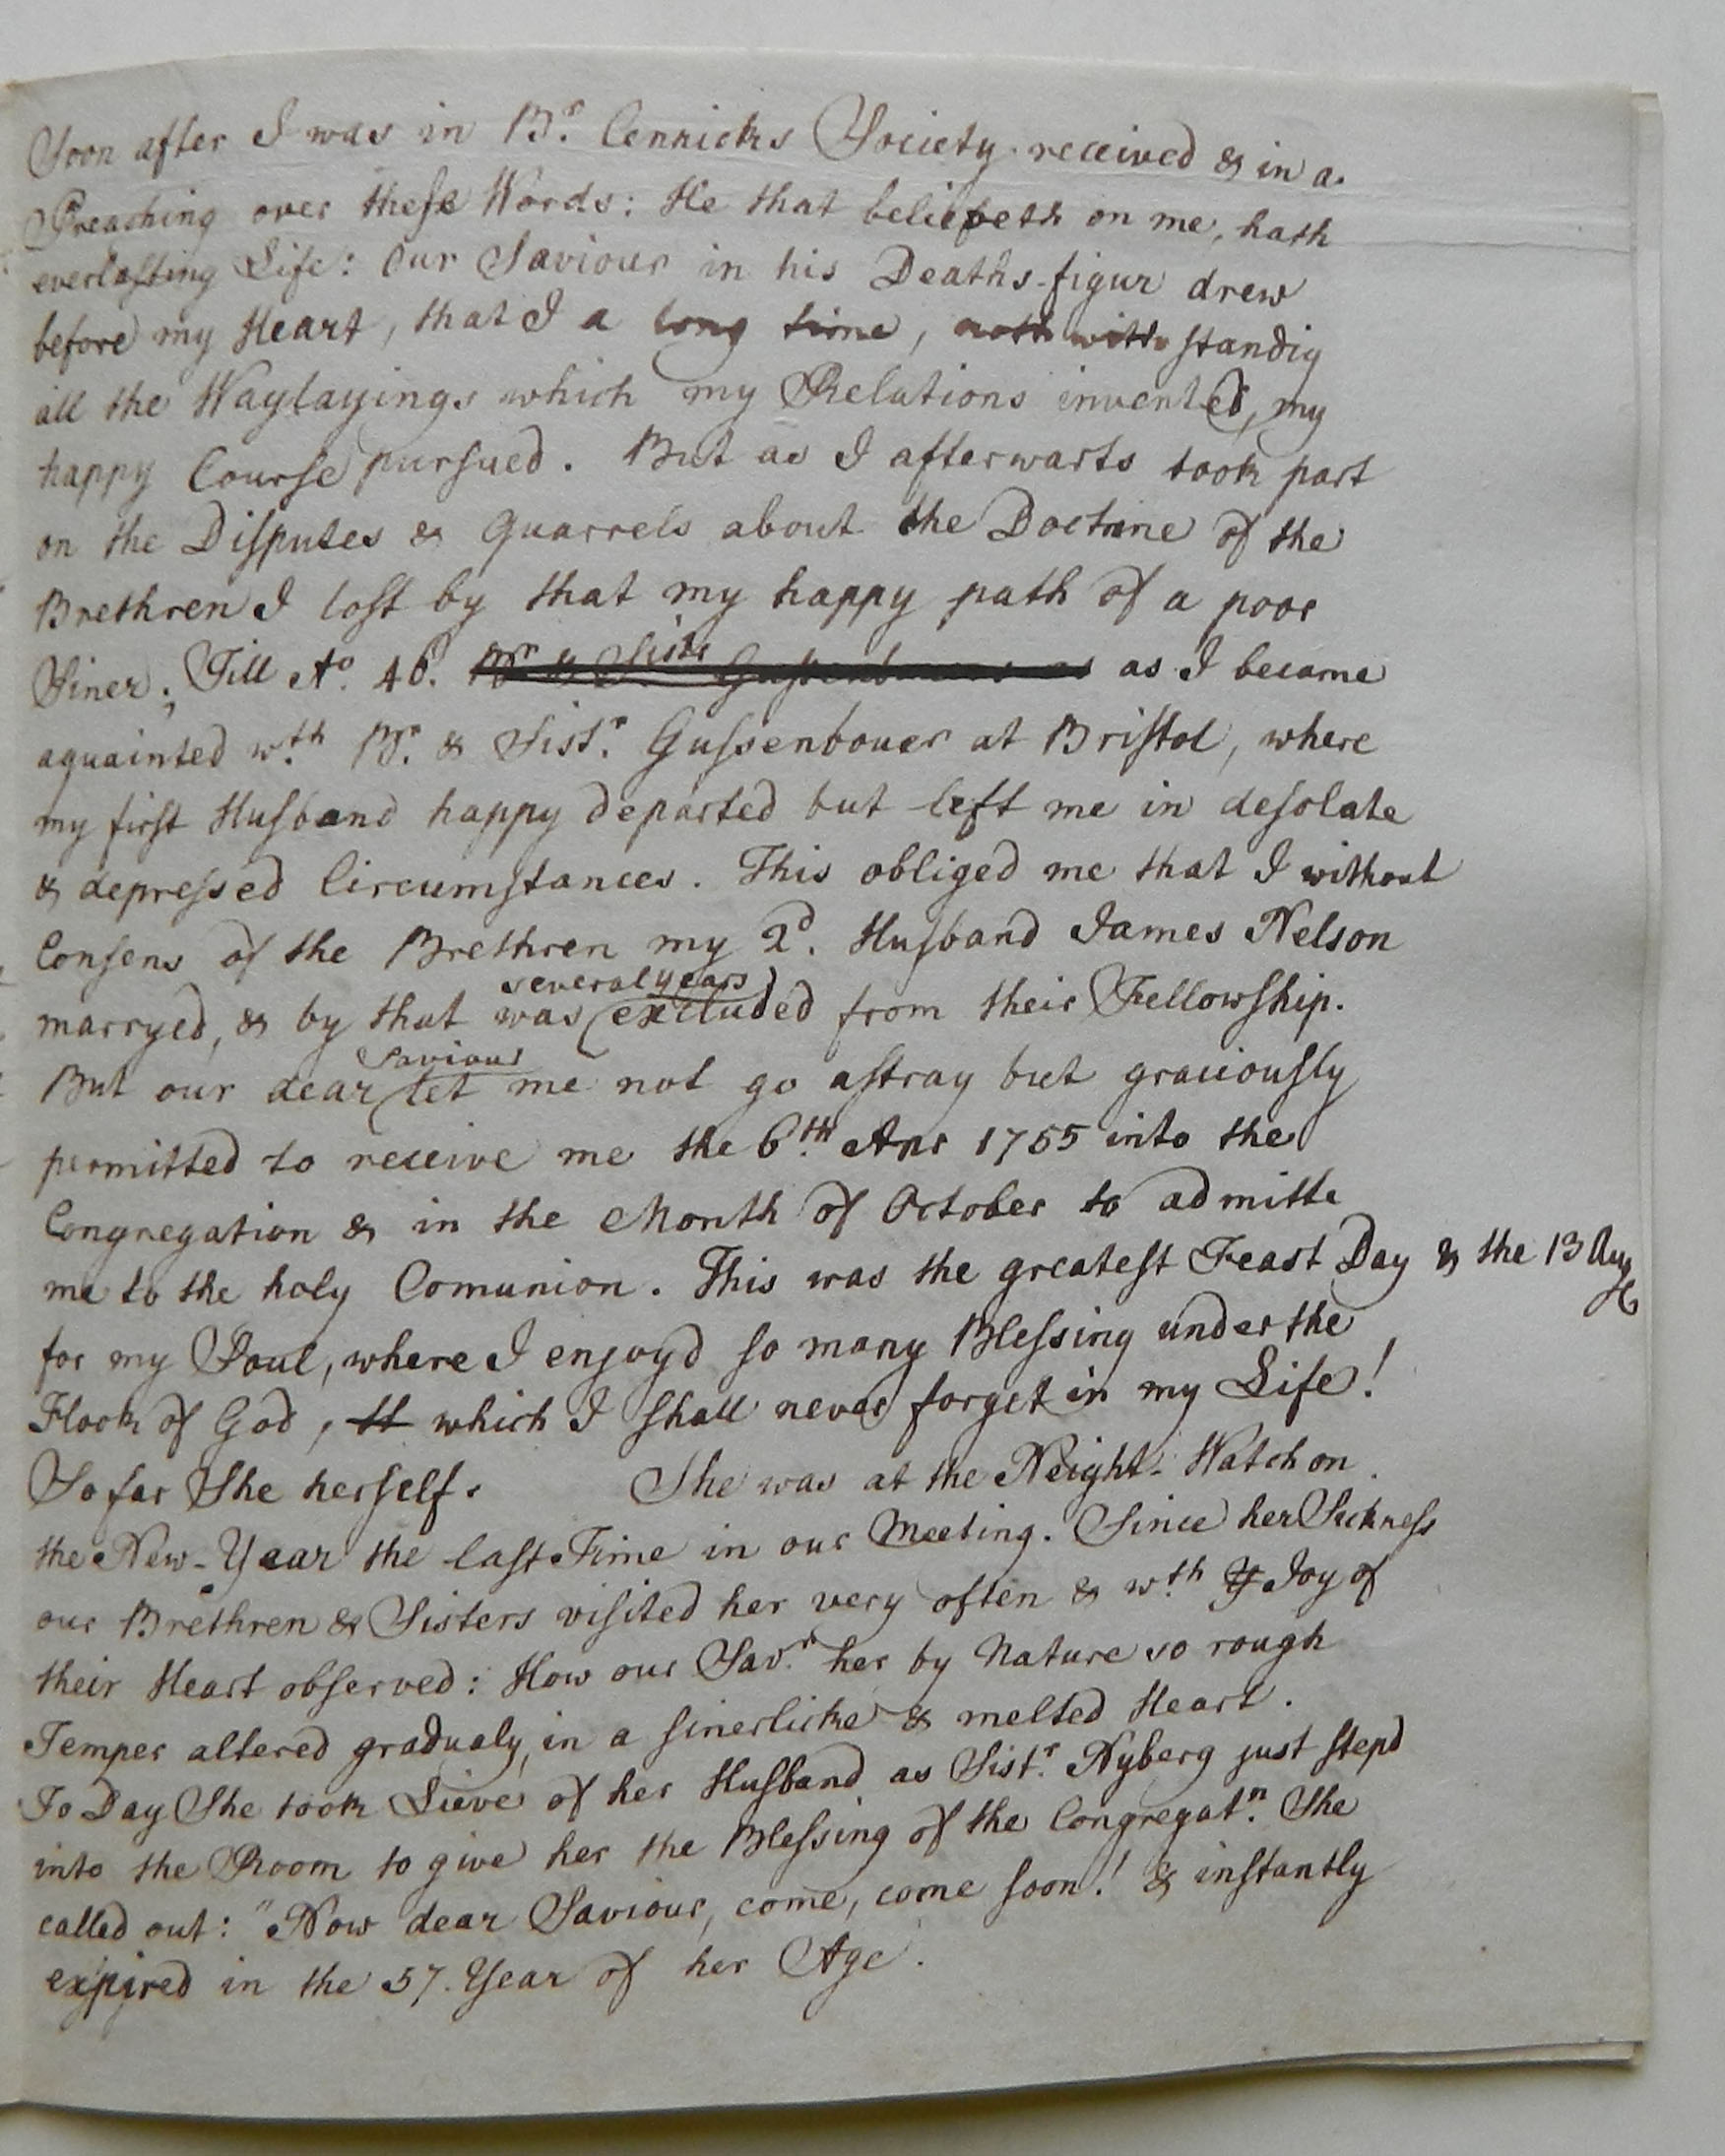 Soon after I was in Br. Cennicks Society received & in a
Preaching over these Words: He that believeth on me, hath
everlasting Life: Our Saviour in his Deaths-figur drew
before my Heart, that I a long time, notwithstandig
all the Waylayings which my Relations invented, my
happy Course pursued. But as I afterwarts took part
on the Disputes & Quarrels about the Doctrine of the
Brethren I lost by that my happy path of a poor
Siner; Till Ao. 46. Br & Sistr Gussenbauers as as I became
aquainted wth. Br. & Sistr. Gussenbouer at Bristol, where
my first Husband happy departed but left me in desolate
& depressed Circumstances. This obliged me that I without
Consens of the Brethren my 2d. Husband James Nelson
several years
marryed, & by that was excluded from their Fellowship.
Saviour
But our dear let me not go astray but graciously
permitted to receive me the 6th. Apr 1755 into the
Congregation & in the Month of October to admitte
me to the holy Comunion. This was the greatest Feast Day & the 13 Aug
for my Soul, where I enjoyd so many Blessing under the
Flock of God, which I shall never forget in my Life!
So far She herself. She was at the Neight-Watch on
the New-Year the last Time in our Meeting. Since her Sickness
our Brethren & Sisters visited her very often & wth. Joy of
their Heart observed: How our Savr. her by Nature so rough
Temper altered gradualy in a sinerlicke & melted Heart.
To Day She took Lieve of her Husband as Sistr. Nyberg just stepd
into the Room to give her the Blessing of the Congregatn. She
called out: "Now dear Saviour, come, come soon! & instantly
expired in the 57. Year of her Age.